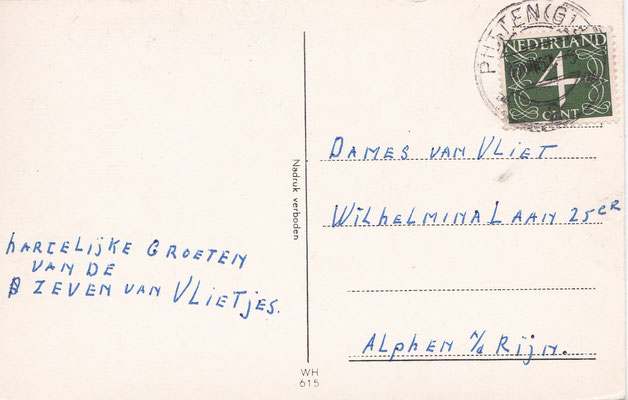 PUTTEN(G)
NEDERLAND
4
CENT
DAMES VAN VLIET
WILHELMINA LAAN 25 CR
ALPHEN A/D RIJN.
HARTELIJKE GROETEN
VAN DE
ZEVEN VAN VLIETJES.
Nadruk verboden
WH
615